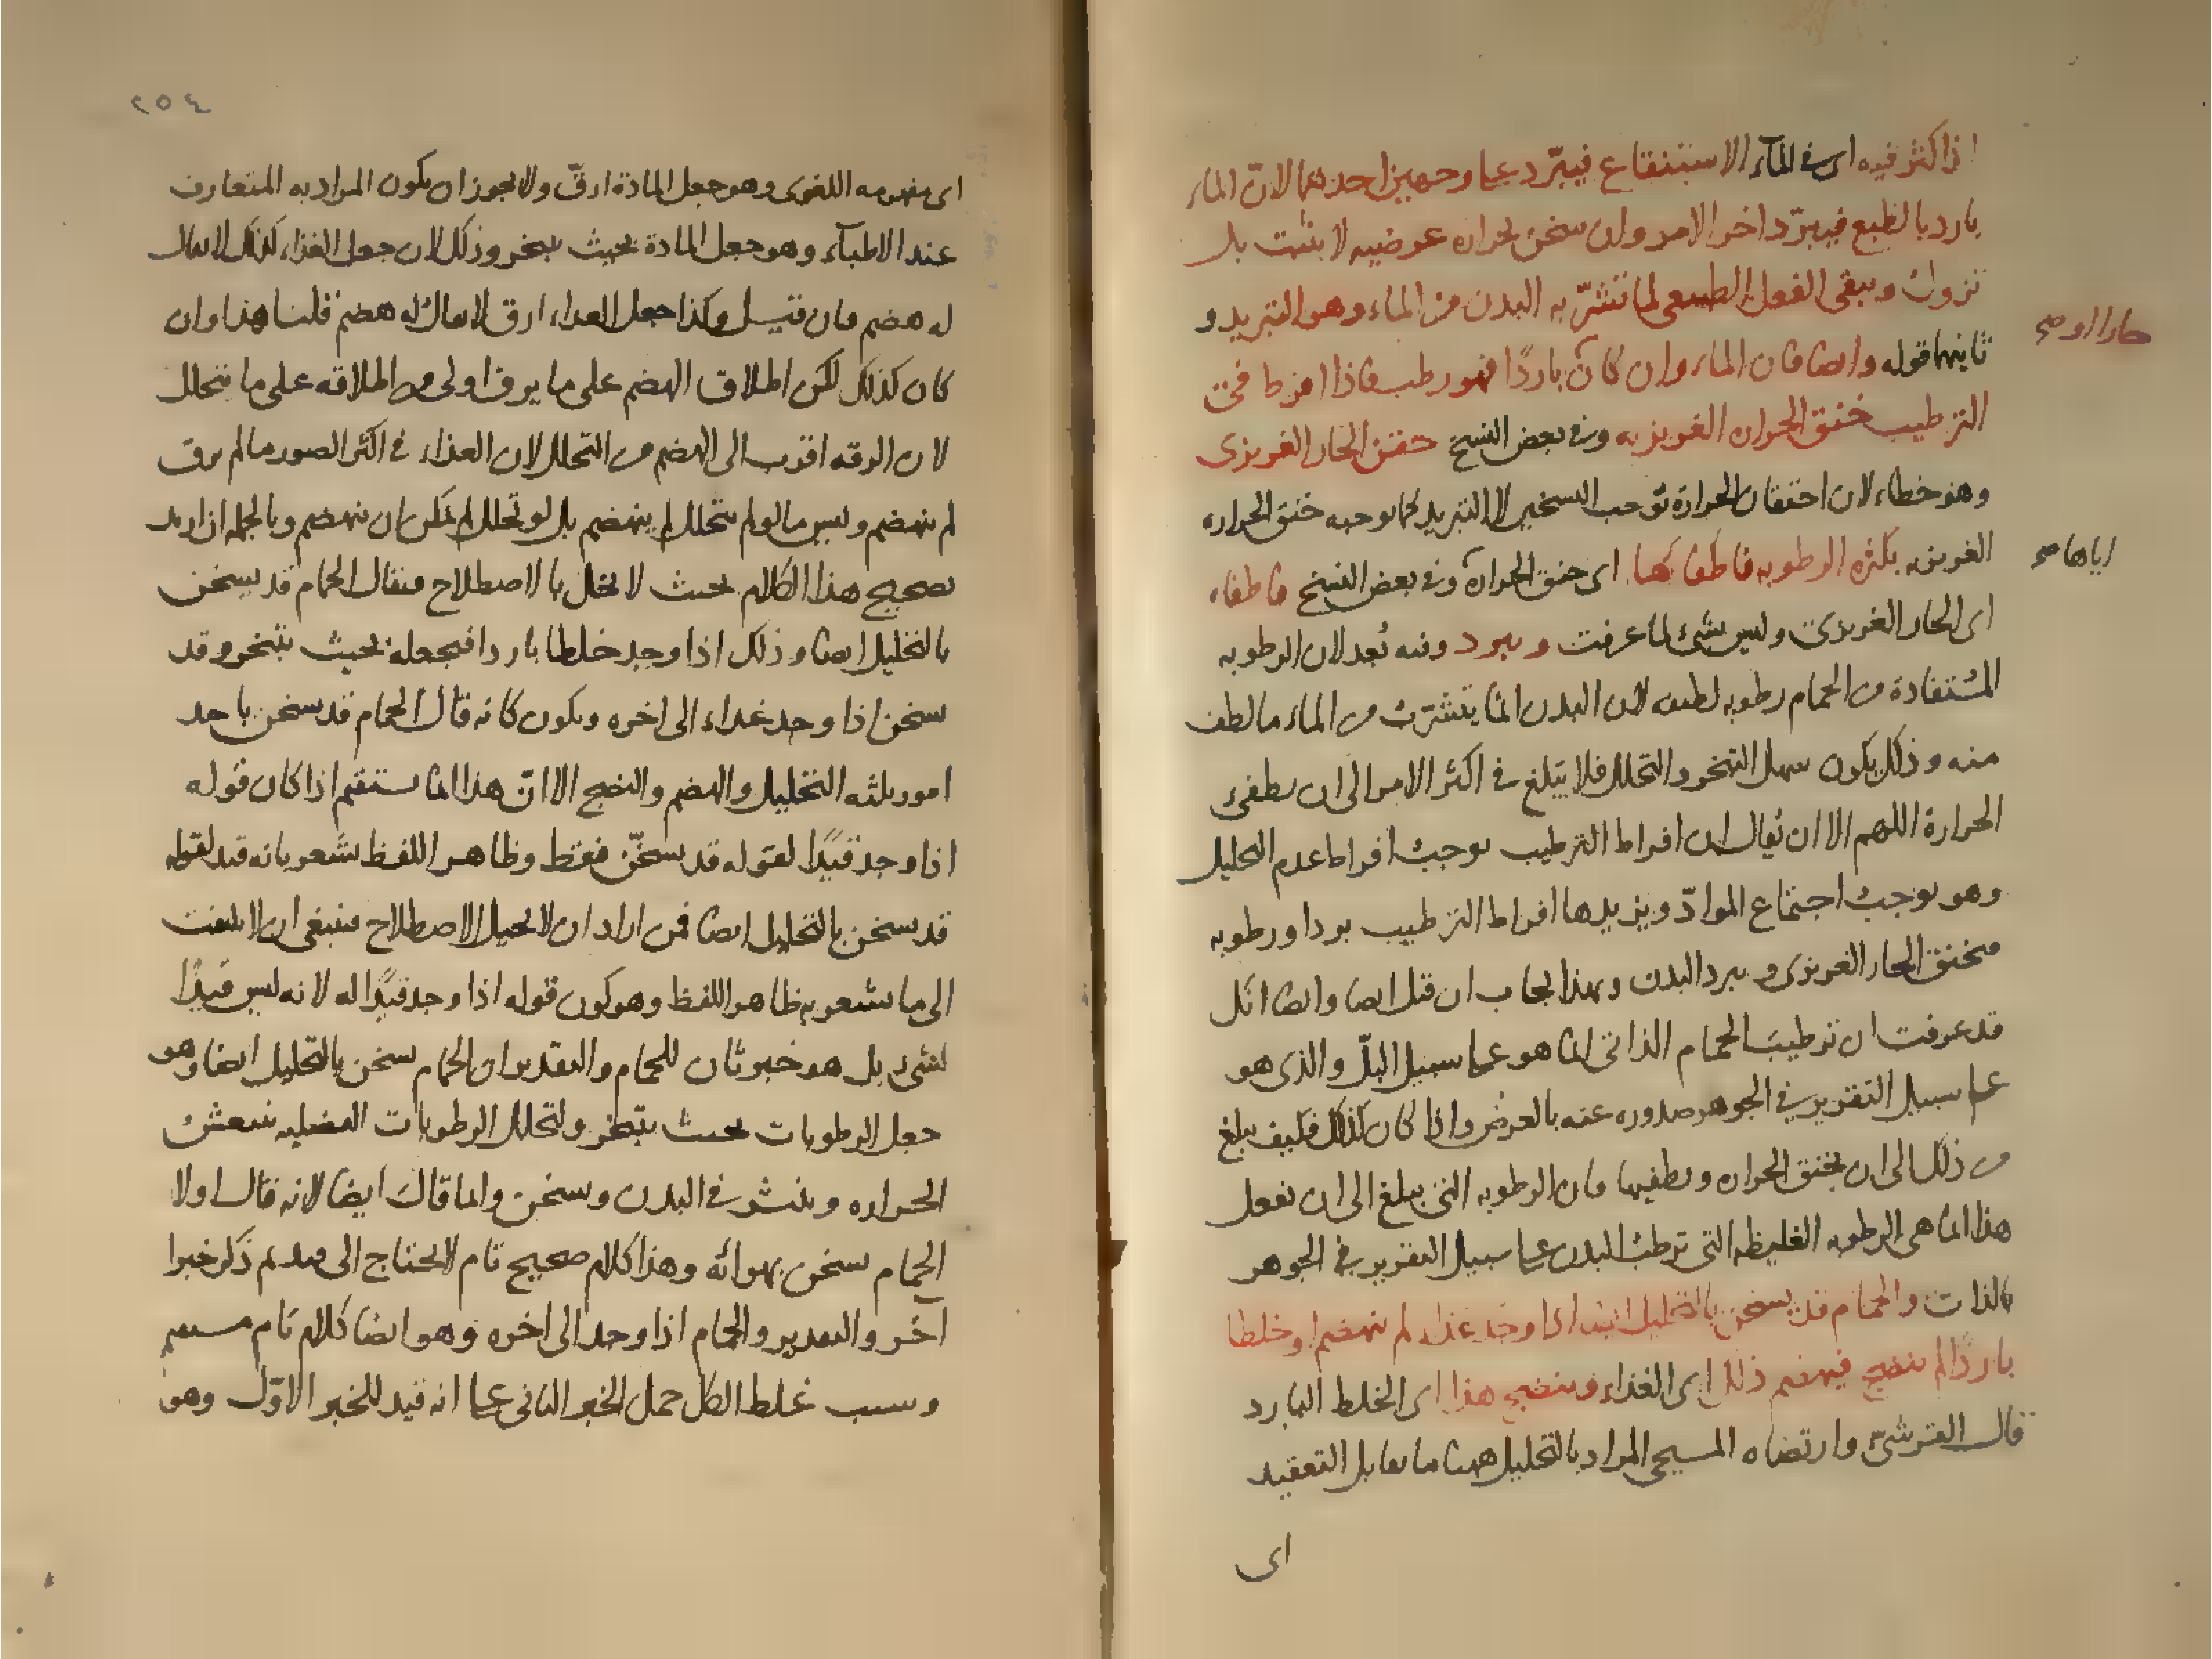 اذا كثر فيه اى فى المآء الاستنقاع فيبرّد على وجهين احدهما لانّ الماء
بارد بالطبع فيبرّد اخر الامر وان سخن بحرارة عرضيه لا يثبت بل
تزول ويبقى الفعل الطبيعى لما تشرّبه البدن من الماء وهو التبريد و
ثانيهما قوله وايضا فان الماء وان كان باردًا فهو رطب فاذا افرط فى
حارا او صح
الترطيب خنق الحرارة الغريزيه وفى بعض النسخ حقن الحار الغريزى
وهو خطاء لان احتقان الحرارة توجب التسخين لا التبريد كما يوجبه خنق الحراره
الغريزيه بكثره الرطوبه فاطفاها اى خنق الحرارة وفى بعض النسخ فاطفاء
اياها صح
اى الحار الغريزى وليس بشئ لما عرفت ويبرد وفيه بُعد لان الرطوبه
المُستفادة من الحمام رطوبه لطيفه لان البدن انما يتشرّب من الماء ما لطف
منه وذلك يكون سهل التبخر والتحلل فلا يبلغ فى اكثر الامر الى ان يطفئ
الحرارة اللهم الا ان يُقال ان افراط الترطيب يوجب افراط عدم التحليل
وهو يوجب اجتماع الموادّ ويزيدها افراط الترطيب بردا ورطوبه
فيختنق الحار الغريزى ويبرد البدن وبهذا يجاب ان قيل ايضا وايضا انك
قد عرفت ان ترطيب الحمام الذاتى انما هو على سبيل البلّ والذى هو
على سبيل التقرير فى الجوهر صدوره عنه بالعرض واذا كان كذلك فكيف يبلغ
من ذلك الى ان يخنق الحراره ويطفيها فان الرطوبه التى يبلغ الى ان تفعل
هذا انما هى الرطوبه الغليظه التى ترطب البدن على سبيل التقرير فى الجوهر
بالذات والحمام قد يسخن بالتحليل ايضا اذا وجد غذاء لم ينهضم او خلطا
باردًا لم ينضج فيهضم ذلك اى الغذاء وينضج هذا اى الخلط البارد
قال القرشىّ وارتضاه المسيحى المراد بالتحليل ههنا ما يقابل التعقيد
اى
٢٥٤
اى مفهومه اللغوى وهو جعل المادة ارقّ ولا يجوز ان يكون المراد به المتعارف
عند الاطبآء وهو جعل المادة بحيث يتبخر وذلك لان جعل الغذاء كذلك لا يقال
له هضم فان قيل وكذا جعل الغذاء ارق لا يقال له هضم قلنا هذا وان
كان كذلك لكن اطلاق الهضم على ما يرق اولى من اطلاقه على ما يتحلل
لان الرقه اقرب الى الهضم من التحلل لان الغذاء فى اكثر الصور ما لم يرق
لم ينهضم وليس ما لو لم يتحلل لم ينهضم بل لو تحلل لم يمكن ان ينهضم وبالجمله ان اريد
تصحيح هذا الكلام بحيث لا يخل بالاصطلاح فيقال الحمام قد يسخن
بالتحليل ايضا وذلك اذا وجد خلطا باردا فيجعله بحيث يتبخر وقد
يسخن اذا وجد غذاء الى اخره ويكون كانه قال الحمام قد يسخن باحد
امور ثلثه التحليل والهضم والنضج الا انّ هذا انما يستقيم اذا كان قوله
اذا وجد قيدًا لقوله قد يسخّن فقط وظاهر اللفظ يشعر بانه قيد لقوله
قد يسخن بالتحليل ايضا فمن اراد ان لا يحيل الاصطلاح فينبغى ان لا يلتفت
الى ما يشعر به ظاهر اللفظ وهو كون قوله اذا وجد قيدًا له لانه ليس قيدًا
لشئ بل هو خبر ثان للحمام والتقدير ان الحمام يسخن بالتحليل ايضا وهو
جعل الرطوبات بحيث يتبخر ولتحلل الرطوبات الفضليه ينتعش
الحراره وينتشر فى البدن ويسخن وانما قال ايضا لانه قال اولا
الحمام يسخن بهوائه وهذا كلام صحيح تام لا يحتاج الى قيد ثم ذكر خبرا
آخر والتقدير والحمام اذا وجد الى اخره وهو ايضا كلام تام مستقيم
وسبب غلط الكل حمل الخبر الثانى على انه قيد للخبر الاوّل وهو